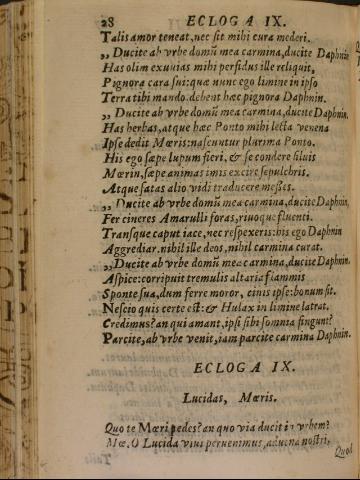 28 ECLOGA IX.
Talis amor teneat, nec sit mihi cura mederi.
,, Ducite ab vrbe domũ mea carmina, ducite Daphnin.
Has olim exuuias mihi perfidus ille reliquit,
Pignora cara sui: quæ nunc ego limine in ipso
Terra tibi mando. debent hæc pignora Daphnin.
,, Ducite ab vrbe domũ mea carmina, ducite Daphnin.
Has herbas, atque hæc Ponto mihi lecta venena
Ipse dedit Mœris: nascuntur plurima Ponto.
His ego sæpe lupum fieri, & se condere siluis
Mœrin, sæpe animas imis excire sepulchris.
Atque satas alio vidi traducere messes.
,, Ducite ab vrbe domũ mea carmina, ducite Daphnin.
Fer cineres Amarulli foras, riuoque fluenti.
Transque caput iace, nec respexeris: his ego Daphnin
Aggrediar. nihil ille deos, nihil carmina curat.
,, Ducite ab vrbe domũ mea carmina, ducite Daphnin.
Aspice: corripuit tremulis altaria flammis
Sponte sua, dum ferre moror, cinis ipse: bonum sit.
Nescio quis certe est: & Hulax in limine latrat.
Credimus? an qui amant, ipsi sibi somnia fingunt?
Parcite, ab vrbe venit, iam parcite carmina Daphnin.
ECLOGA IX.
Lucidas, Mœris.
Quo te Mœri pedes? an quo via ducit in vrbem?
Mœ. O Lucida viui peruenimus, aduena nostri,
Quod